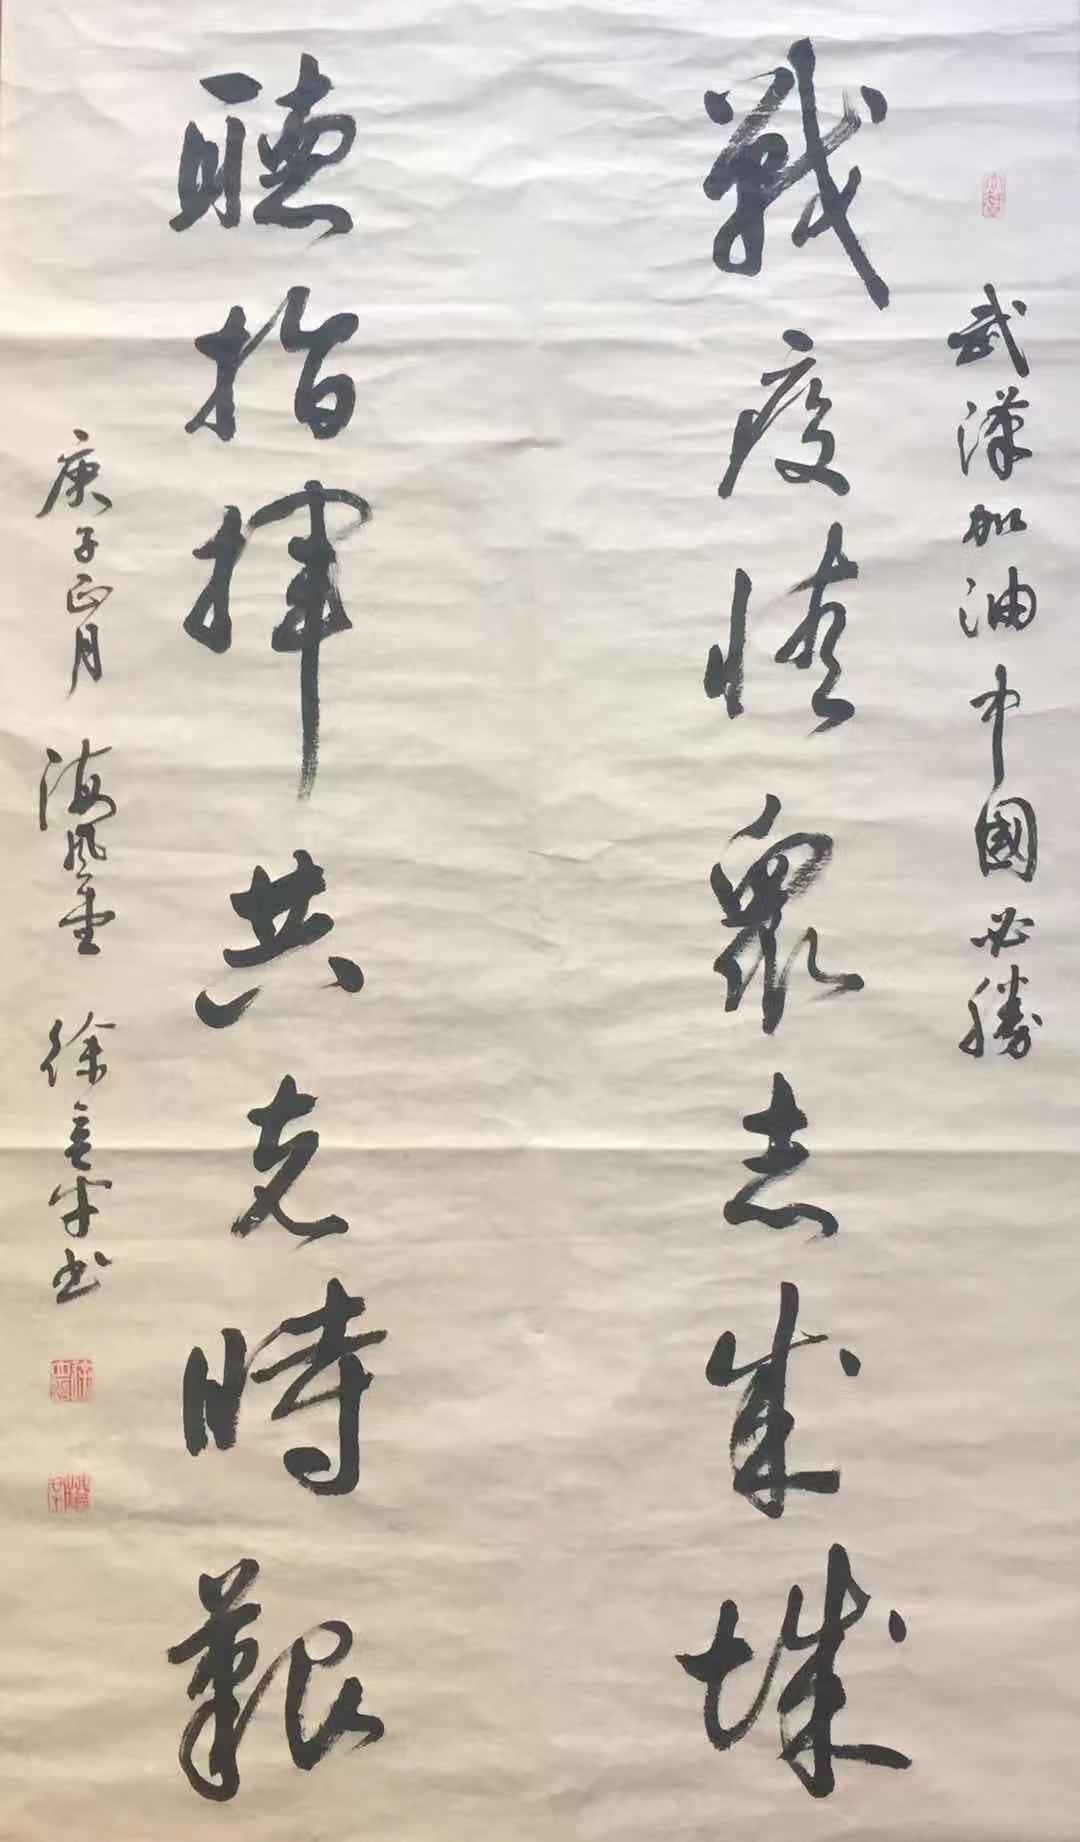 武漢加油中國必勝
戰疫情眾志成城
聽指揮共克時艱
庚子正月 海風堂 徐言军书